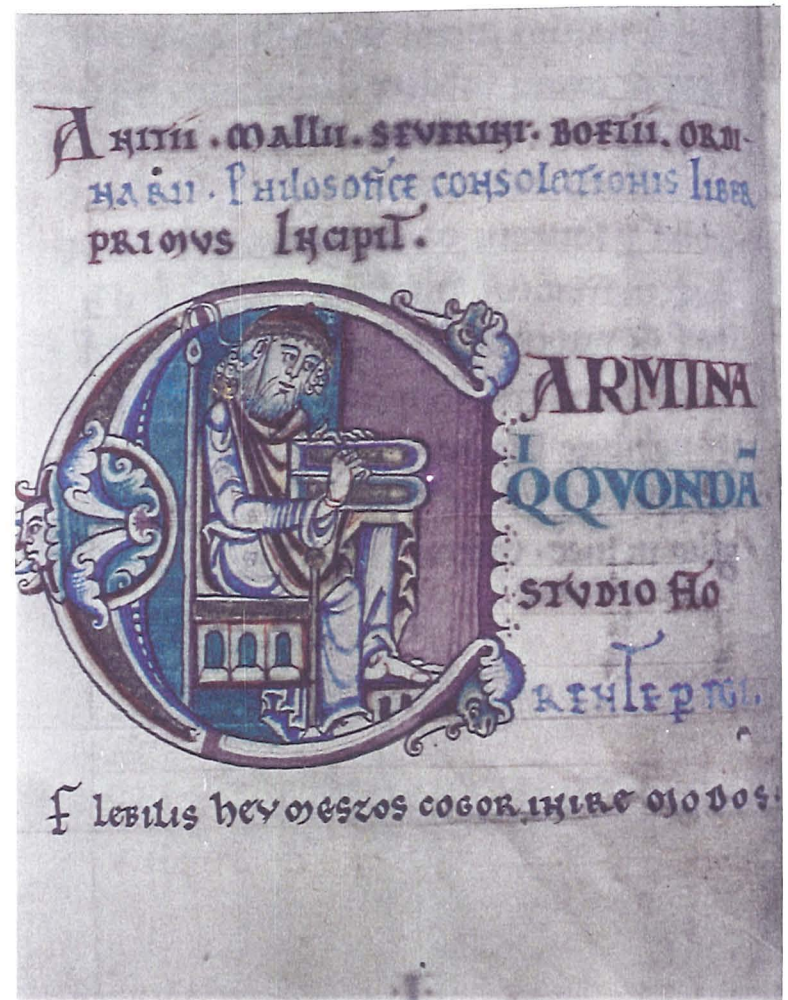 ANITII . MALLII . SEVERINI . BOETII . ORDI-
NARII . PHILOSOFICE CONSOLATIONIS LIBER
PRIMVS INCIPIT .
CARMINA
I
QQVONDĀ
STVDIO FLO
RENTE P
FLEBILIS HEV MESTOS COGOR INIRE MODOS .